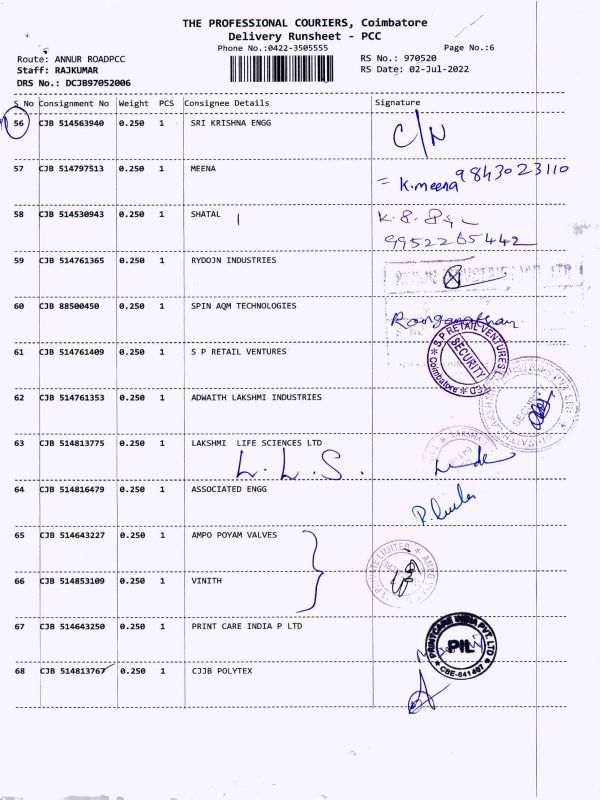 THE PROFESSIONAL COURIERS, Coimbatore
Delivery Runsheet - PCC
Phone No.:0422-3505555
Page No.:6
Route: ANNUR ROADPCC
RS No.: 970520
Staff: RAJKUMAR
RS Date: 02-Jul-2022
DRS No.: DCJB97052006
S No Consignment No Weight PCS Consignee Details Signature
56 CJB 514563940 0.250 1 SRI KRISHNA ENGG C/N
57 CJB 514797513 0.250 1 MEENA = K.meena 9843023110
58 CJB 514530943 0.250 1 SHATAL K.8.
9952265442
59 CJB 514761365 0.250 1 RYDOJN INDUSTRIES
60 CJB 88500450 0.250 1 SPIN AQM TECHNOLOGIES Ranganathan
61 CJB 514761409 0.250 1 S P RETAIL VENTURES
S.P RETAIL VENTURES LTED
SECURITY
Coimbatore
62 CJB 514761353 0.250 1 ADWAITH LAKSHMI INDUSTRIES
SECURITY
63 CJB 514813775 0.250 1 LAKSHMI LIFE SCIENCES LTD
L.L.S.
64 CJB 514816479 0.250 1 ASSOCIATED ENGG
65 CJB 514643227 0.250 1 AMPO POYAM VALVES
PRIVATE LIMITED ★ AMPO
66 CJB 514853109 0.250 1 VINITH
67 CJB 514643250 0.250 1 PRINT CARE INDIA P LTD
PRINTCARE INDIA PVT. LTD
PIL
CBE-641407
68 CJB 514813767 0.250 1 CJJB POLYTEX